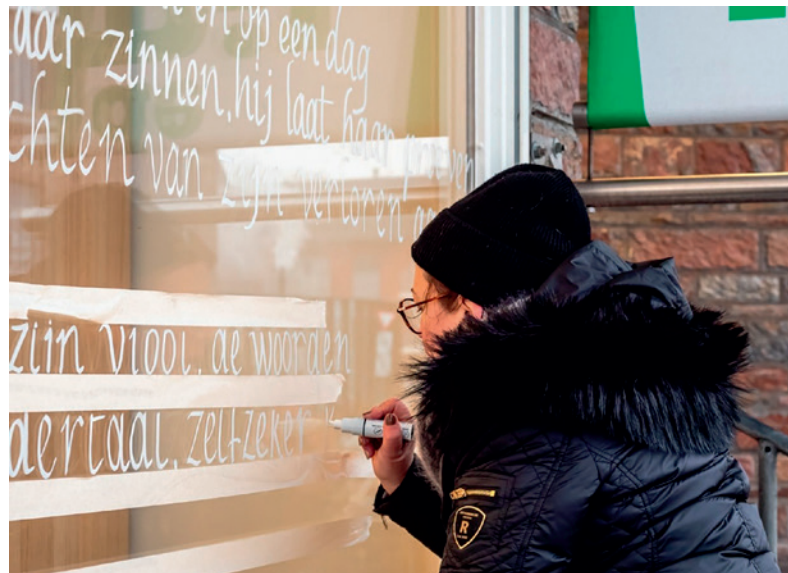 en op een dag
aar zinnen, hij laat haar proeven
chten van zijn verloren
zijn viool, de woorden
dertaal, zelfzeker
R